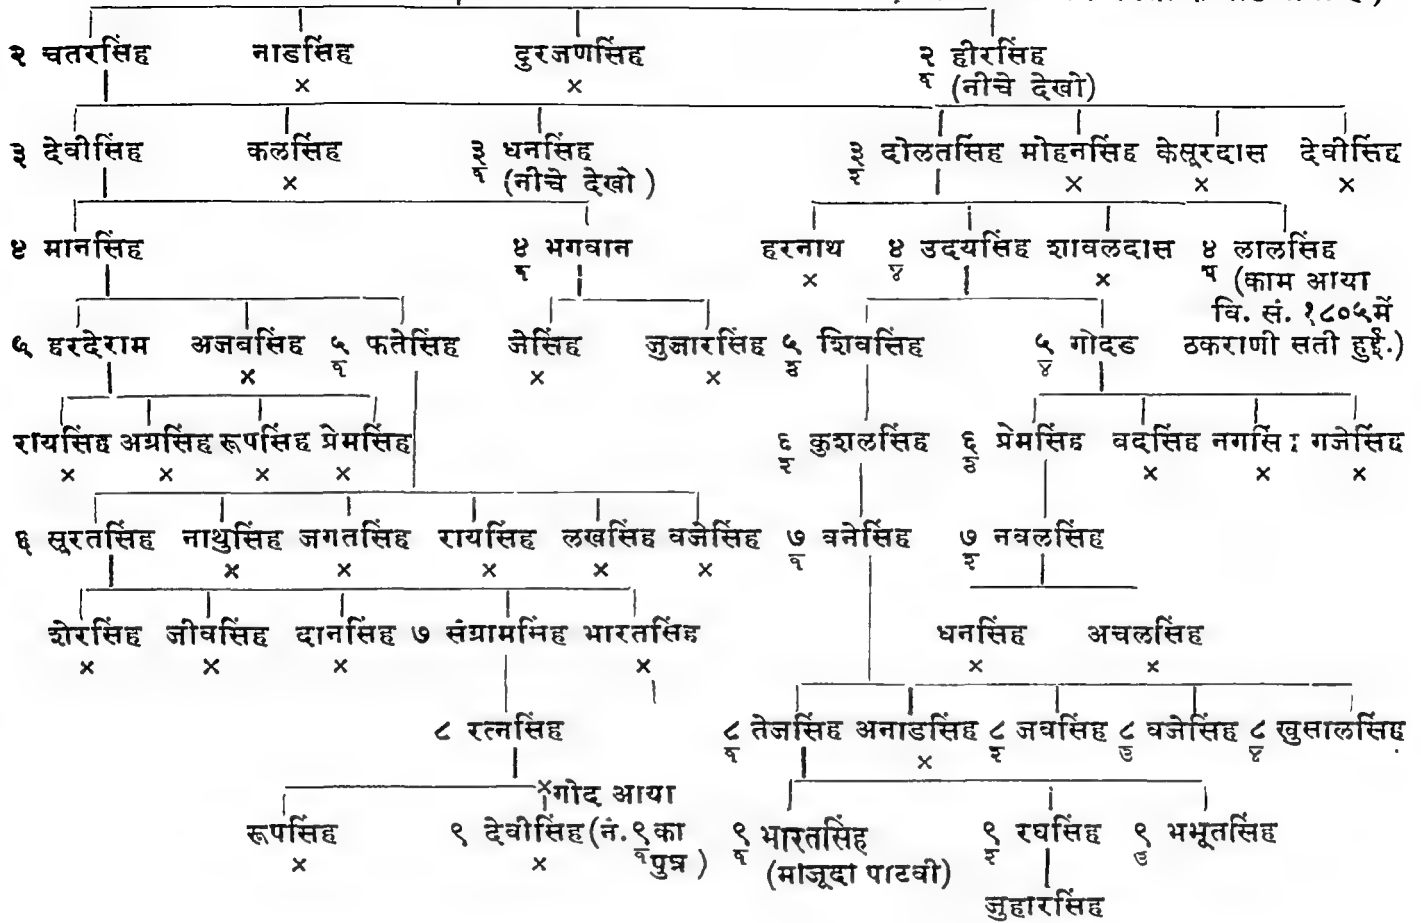 २ चतरसिंह नाडसिंह दुरजणसिंह २/१ हीरसिंह
× × (नीचे देखो)
३ देवीसिंह कलसिंह ३/१ धनसिंह ३/२ दोलतसिंह मोहनसिंह केसूरदास देवीसिंह
× (नीचे देखो) × × ×
४ मानसिंह ४/१ भगवान हरनाथ ४/४ उदयसिंह शावलदास ४/५ लालसिंह
× × (काम आया
वि. सं. १८०५में
५ हरदेराम अजबसिंह ५/१ फतेसिंह जैसिंह जुझारसिंह ५/३ शिवसिंह ५/४ गोदड ठकराणी सती हुई.)
× × ×
रायसिंह अग्रसिंह रूपसिंह प्रेमसिंह ६/२ कुशलसिंह ६/३ प्रेमसिंह वदसिंह नगसिं गजेसिंह
× × × × × × ×
६ सूरतसिंह नाथुसिंह जगतसिंह रायसिंह लखसिंह वजेसिंह ७/१ वनेसिंह ७/२ नवलसिंह
× × × × ×
शेरसिंह जीवसिंह दानसिंह ७ संग्रामसिंह भारतसिंह धनसिंह अचलसिंह
× × × × × ×
८ रत्नसिंह ८/१ तेजसिंह अनाडसिंह ८/२ जवसिंह ८/३ वजेसिंह ८/४ खुसालसिंह
×
×गोद आया
रूपसिंह ९ देवीसिंह (नं. ९/१ का पुत्र) ९/१ भारतसिंह ९/२ रघसिंह ९/३ भभूतसिंह
× × (माजूदा पाटवी)
जुहारसिंह